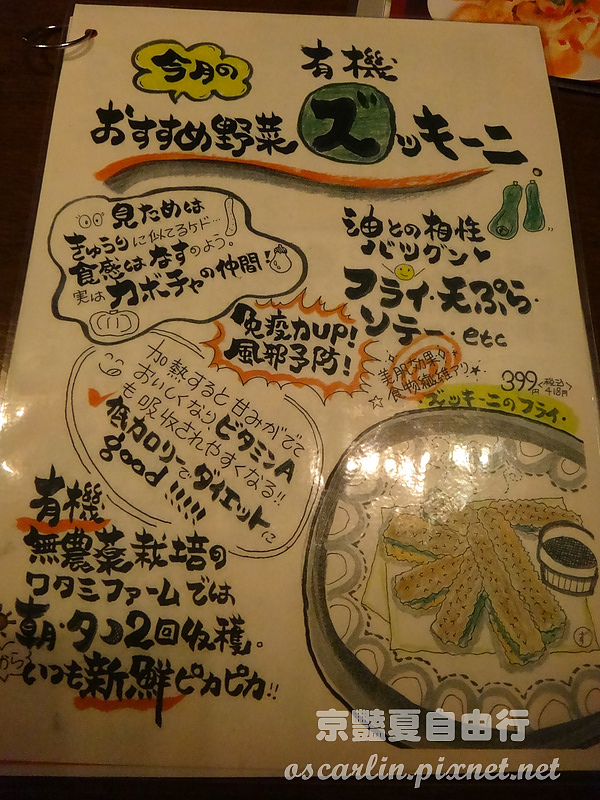 今月の
有機
おすすめ野菜 ズッキーニ。
見ためは
きゅうりに似てるケド…
食感はなすのよう。
実はカボチャの仲間!
油との相性
バツグン
フライ・天ぷら・
ソテー・etc
免疫力UP!
風邪予防!
美肌効果
食物繊維アリ
399円<税込418円>
・ズッキーニのフライ・
加熱すると甘みがでて
おいしくなりビタミンA
も吸収されやすくなる!!
低カロリーでダイエットに
good!!!!!
有機
無農薬栽培の
ワタミファームでは
朝・夕の2回収穫。
いつも新鮮ピカピカ!!
京豔夏自由行
oscarlin.pixnet.net